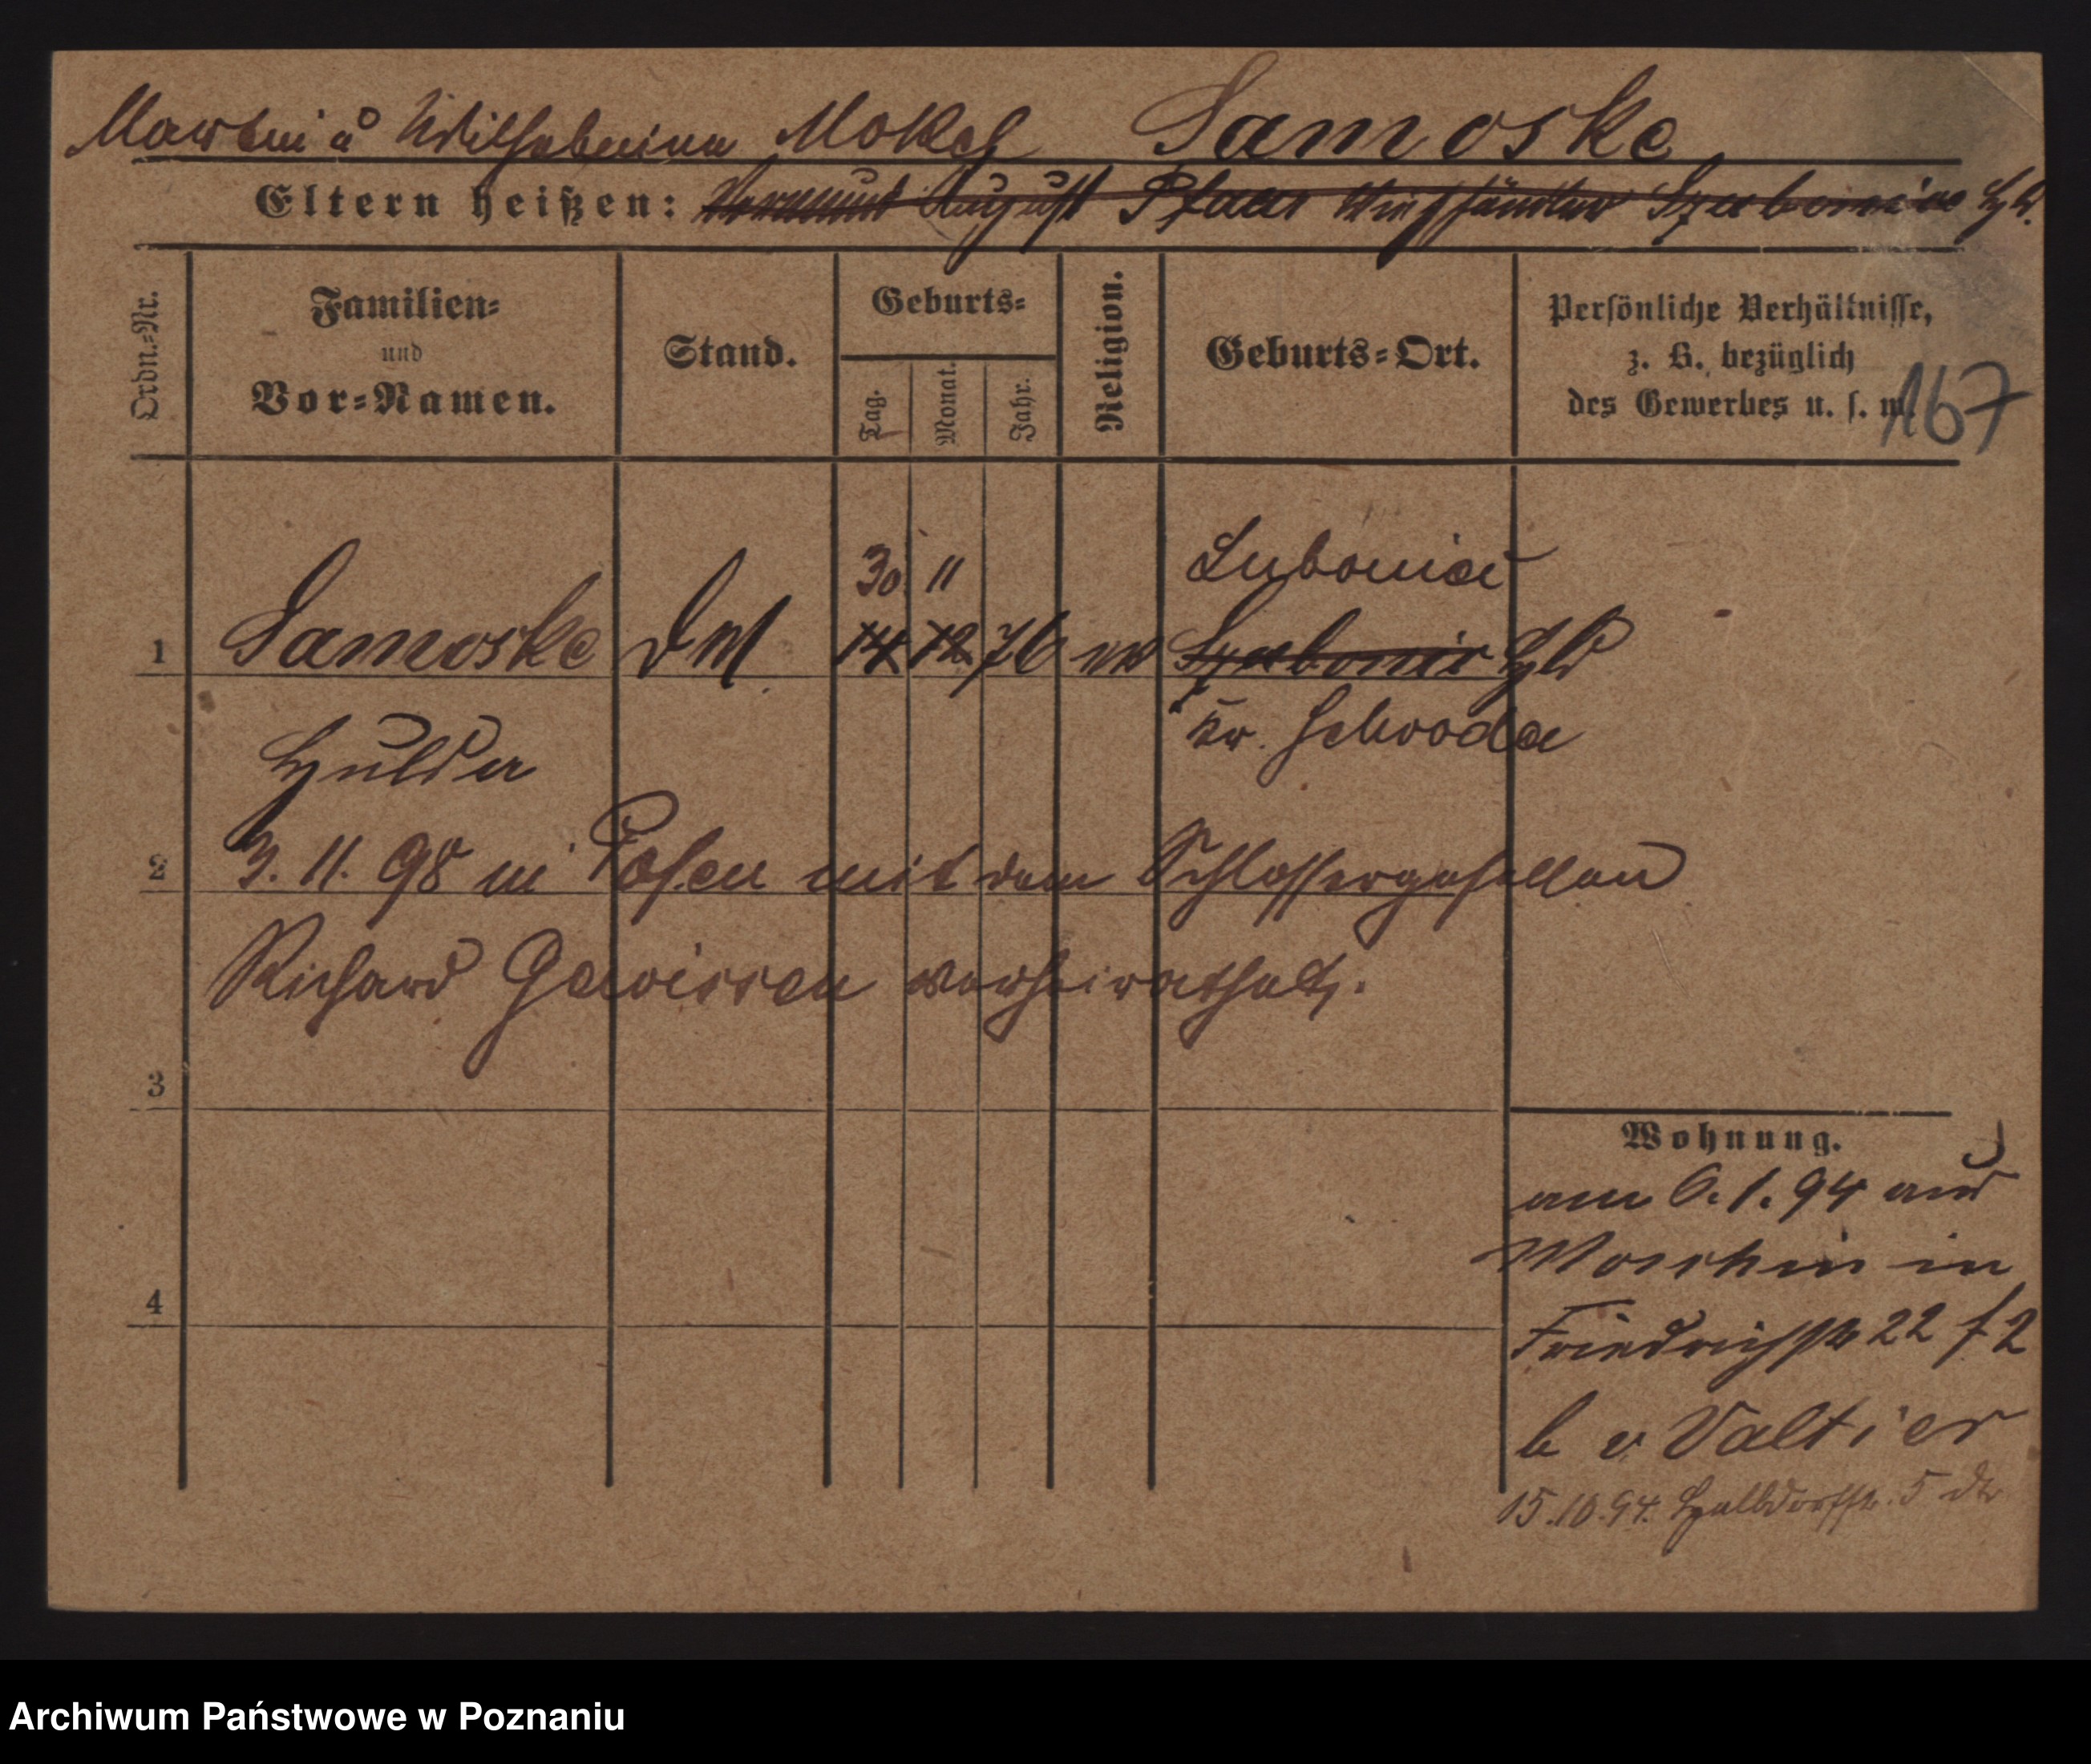 Martin u Wilhelmina Mokel Samoske
Eltern heißen: Vormund August Viehhändler
Ordn.-Nr.
Familien-
und
Vor-Namen.
Stand.
Geburts-
Tag.
Monat.
Jahr.
Religion.
Geburts-Ort.
Persönliche Verhältnisse,
z. B. bezüglich
des Gewerbes u. s. w.
167
30. 11
Lubonia
1 Samoske DM 14 12 76 ev
Kr. Schroda
Hulda
2 3. 11. 98 in Posen mit dem Schlossergesellen
Richard Gewissen verheirathet.
3
Wohnung.
am 6. 1. 94 aus
Moschin in
4
Friedrichstr 22
b v Valtier
15.10.94. Halbdorfstr. 5
Archiwum Państwowe w Poznaniu